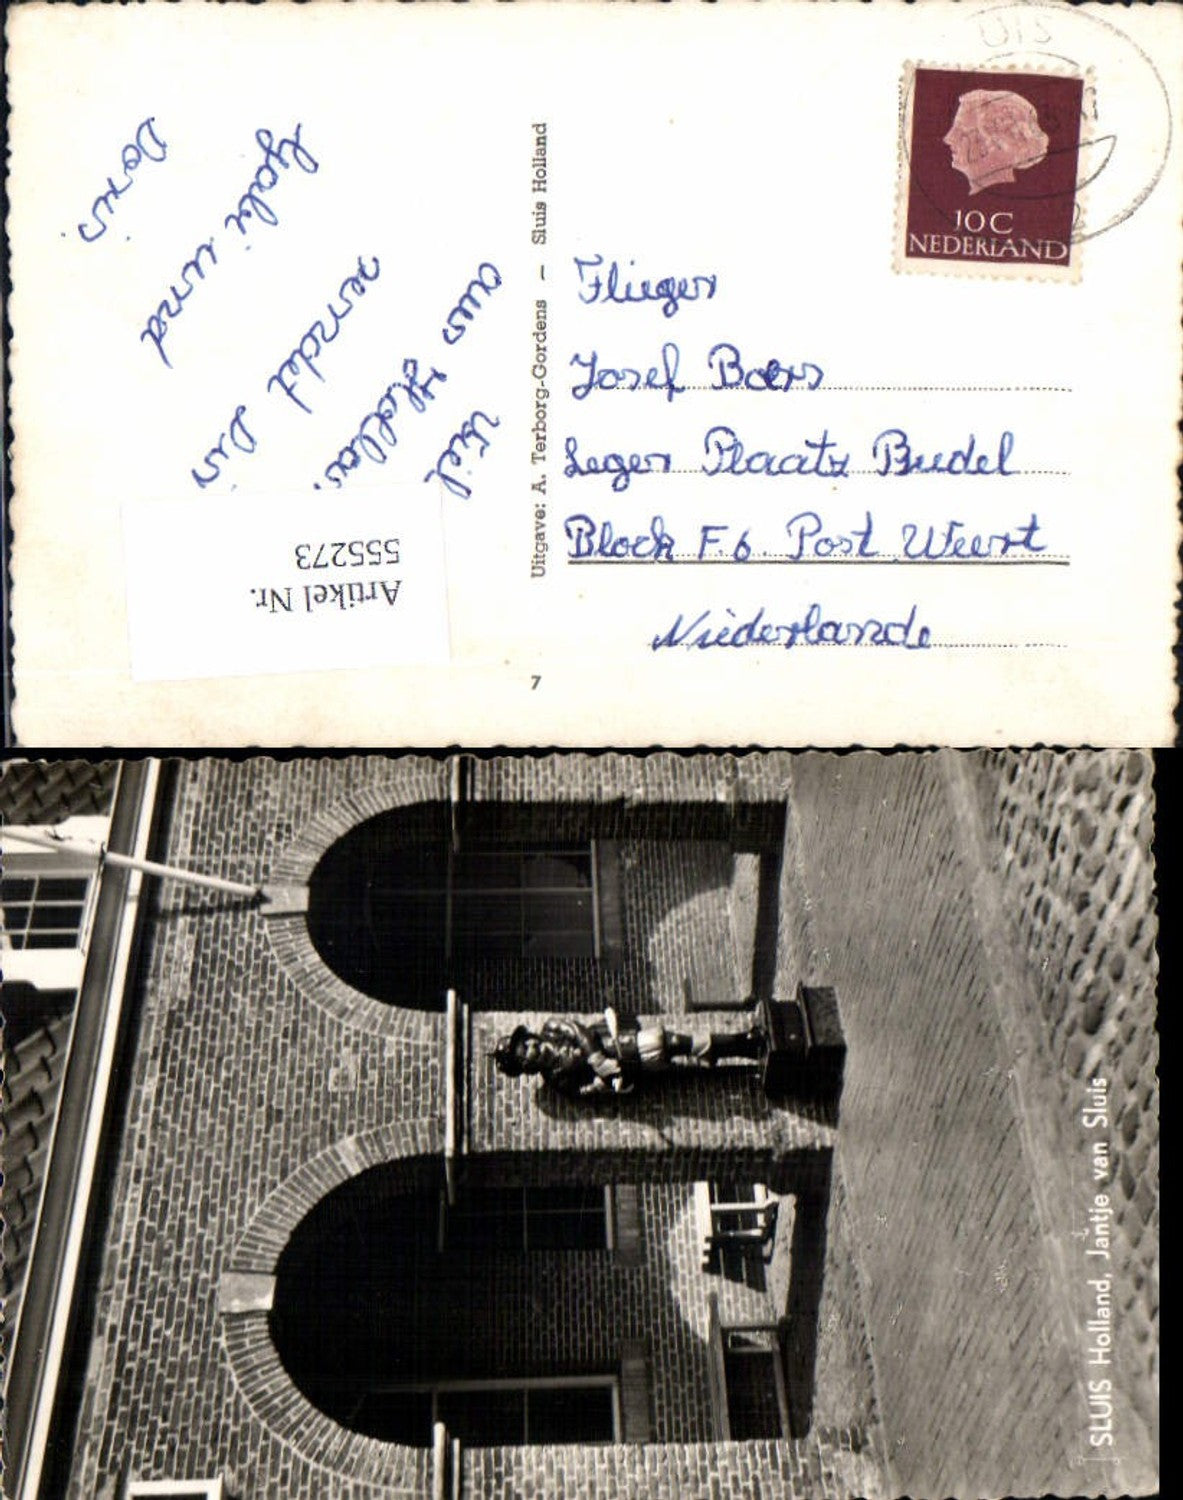 UIS
10 C
NEDERLAND
Viel
aus Holla.
sendet Dir
Gabi und
Doris.
Uitgave: A. Terborg-Gordens – Sluis Holland
Flieger
Josef Boers
Leger Plaatz Budel
Block F.6. Post Weert
Niederlande
Artikel Nr.
555273
7
SLUIS Holland, Jantje van Sluis